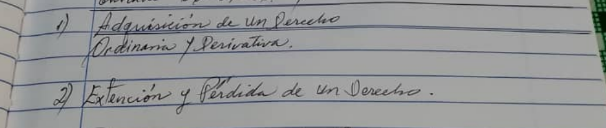 1) Adquisición de un Derecho
Ordinaria y Derivativa.
2) Extención y Pérdida de un Derecho.